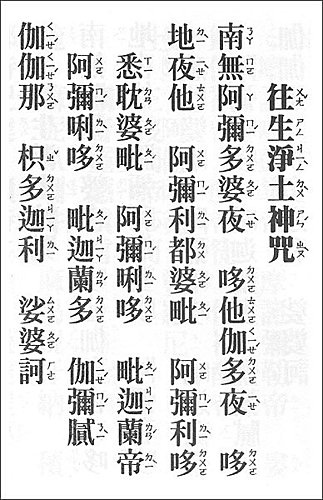 往生淨土神咒
南無阿彌多婆夜　哆他伽多夜　哆
地夜他　阿彌利都婆毗　阿彌利哆
悉耽婆毗　阿彌唎哆　毗迦蘭帝
阿彌唎哆　毗迦蘭多　伽彌膩
伽伽那　枳多迦利　娑婆訶